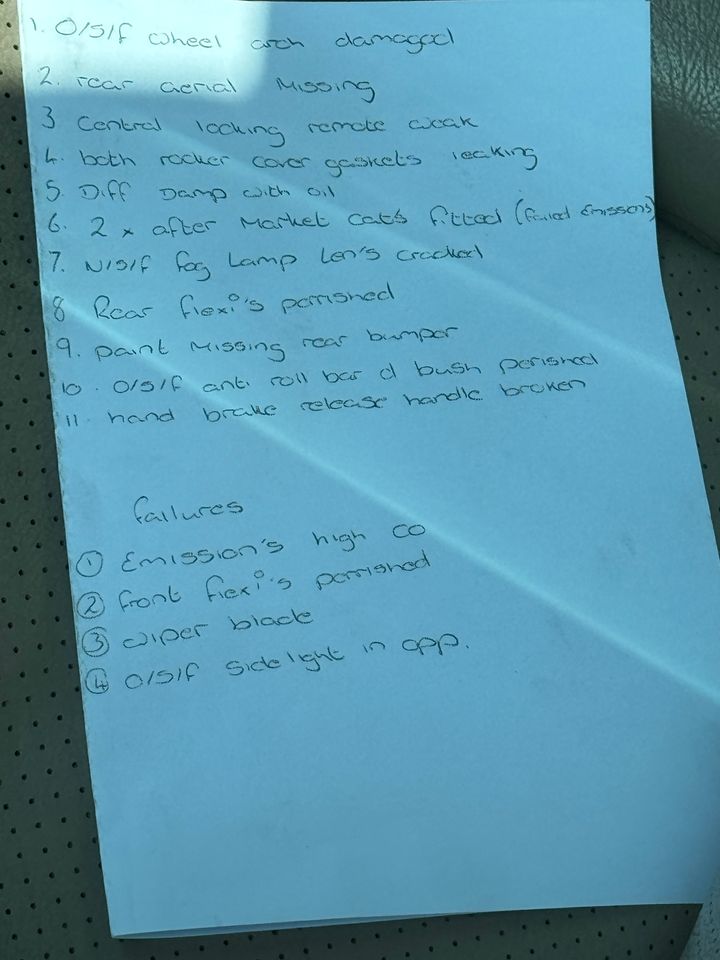 1. O/S/f wheel arch damaged
2. rear aerial Missing
3 Central locking remote weak
4. both rocker cover gaskets leaking
5. Diff Damp with oil
6. 2 x after Market Cat's fitted (failed Emissions)
7. N/S/f fog Lamp Len's cracked
8 Rear flexi's perrished
9. paint Missing rear bumper
10. O/S/f anti roll bar d bush perished
11. hand brake release handle broken
failures
① Emission's high CO
② front flexi's perrished
③ wiper blade
④ O/S/f sidelight in opp.